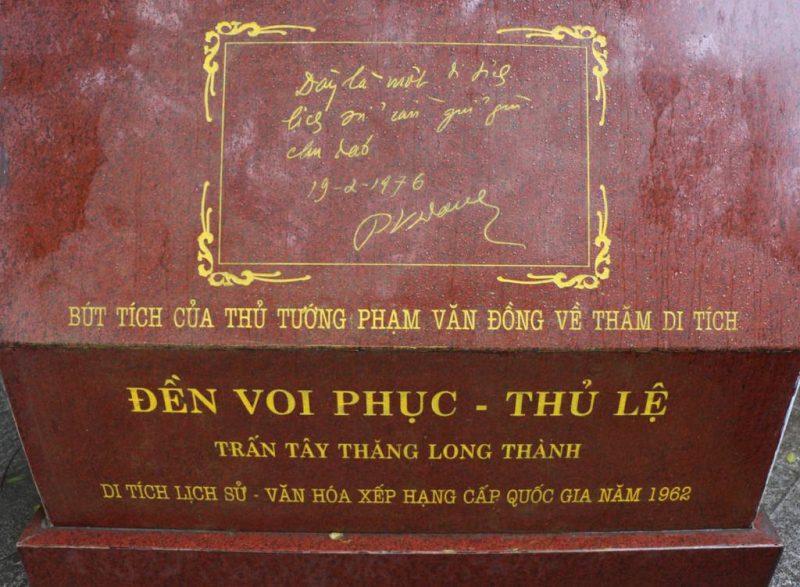 Đây là một di tích
lịch sử cần giữ gìn
chu đáo
19-2-1976
PVĐồng
BÚT TÍCH CỦA THỦ TƯỚNG PHẠM VĂN ĐỒNG VỀ THĂM DI TÍCH
ĐỀN VOI PHỤC - THỦ LỆ
TRẤN TÂY THĂNG LONG THÀNH
DI TÍCH LỊCH SỬ - VĂN HÓA XẾP HẠNG CẤP QUỐC GIA NĂM 1962